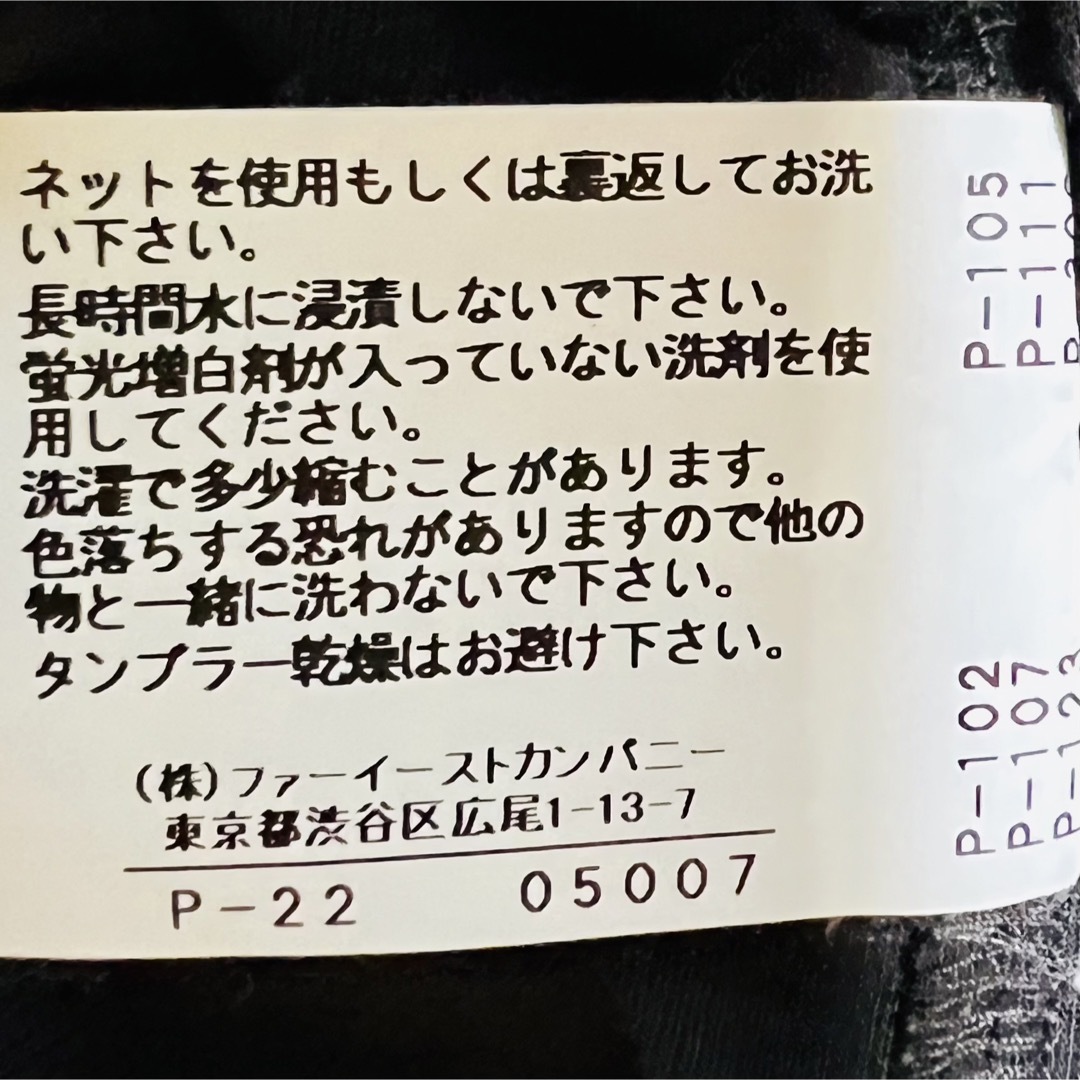 ネットを使用もしくは裏返してお洗
い下さい。
長時間水に浸漬しないで下さい。
蛍光増白剤が入っていない洗剤を使
用してください。
洗濯で多少縮むことがあります。
色落ちする恐れがありますので他の
物と一緒に洗わないで下さい。
タンブラー乾燥はお避け下さい。
(株)ファーイーストカンパニー
東京都渋谷区広尾1-13-7
P-22 05007
P-105
P-111
P-102
P-107